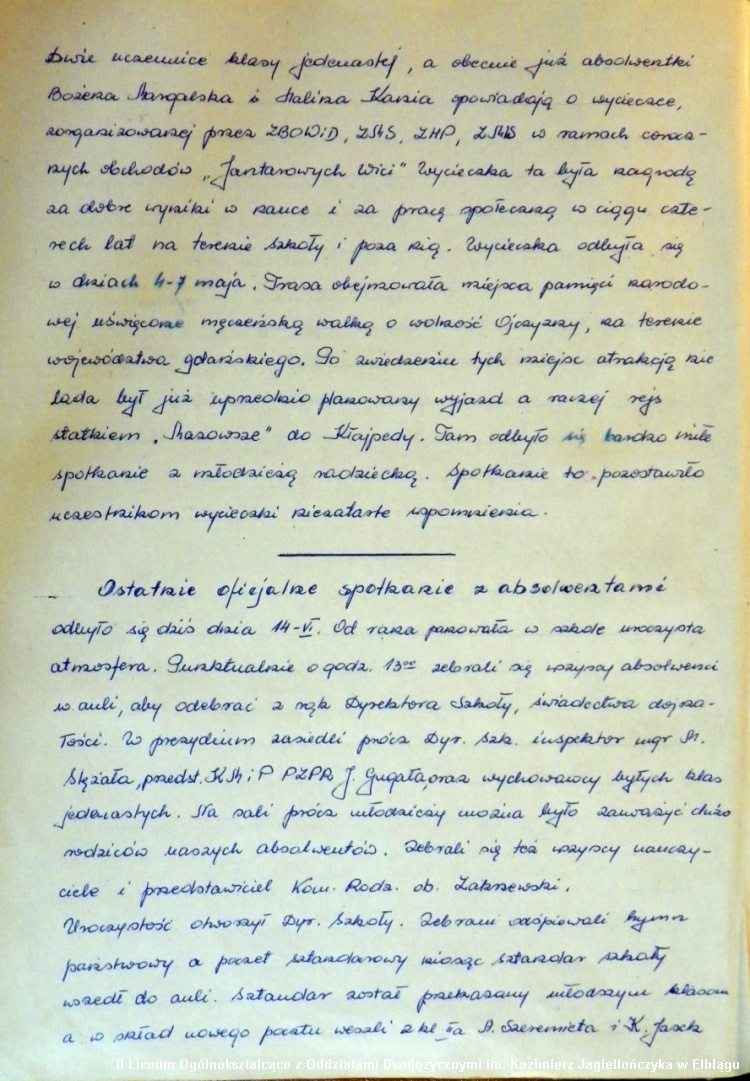 Dwie uczennice klasy jedenastej, a obecnie już absolwentki
Bożena Margalska i Halina Kania opowiadają o wycieczce,
zorganizowanej przez ZBOWiD, ZMS, ZHP, ZMW w ramach corocz-
nych obchodów „Jantarowych Wici" Wycieczka ta była nagrodą
za dobre wyniki w nauce i za pracę społeczną w ciągu czte-
rech lat na terenie szkoły i poza nią. Wycieczka odbyła się
w dniach 4-7 maja. Trasa obejmowała miejsca pamięci narodo-
wej uświęcone męczeńską walką o wolność Ojczyzny, na terenie
województwa gdańskiego. Po zwiedzeniu tych miejsc atrakcją nie
lada był już uprzednio planowany wyjazd a raczej rejs
statkiem „Mazowsze" do Kłajpedy. Tam odbyło się bardzo miłe
spotkanie z młodzieżą radziecką. Spotkanie to pozostawiło
uczestnikom wycieczki niezatarte wspomnienia.
Ostatnie oficjalne spotkanie z absolwentami
odbyło się dziś dnia 14-VI. Od rana panowała w szkole uroczysta
atmosfera. Punktualnie o godz. 13⁰⁰ zebrali się wszyscy absolwenci
w auli, aby odebrać z rąk Dyrektora Szkoły, świadectwa dojrza-
łości. W prezydium zasiedli prócz Dyr. Szk. inspektor mgr M.
Stężała, przedst. KMiP PZPR J. Gugała, oraz wychowawcy byłych klas
jedenastych. Na sali prócz młodzieży można było zauważyć dużo
rodziców naszych absolwentów. Zebrali się też wszyscy nauczy-
ciele i przedstawiciel Kom. Rodz. ob. Zakrzewski.
Uroczystość otworzył Dyr. Szkoły. Zebrani odśpiewali hymn
państwowy a poczet sztandarowy niosąc sztandar szkoły
wszedł do auli. Sztandar został przekazany młodszym klasom
a w skład nowego pocztu weszli z kl IIa A. Szeremieta i K. Jasek
II Liceum Ogólnokształcące z Oddziałami Dwujęzycznymi im. Kazimierz Jagiellończyka w Elblągu